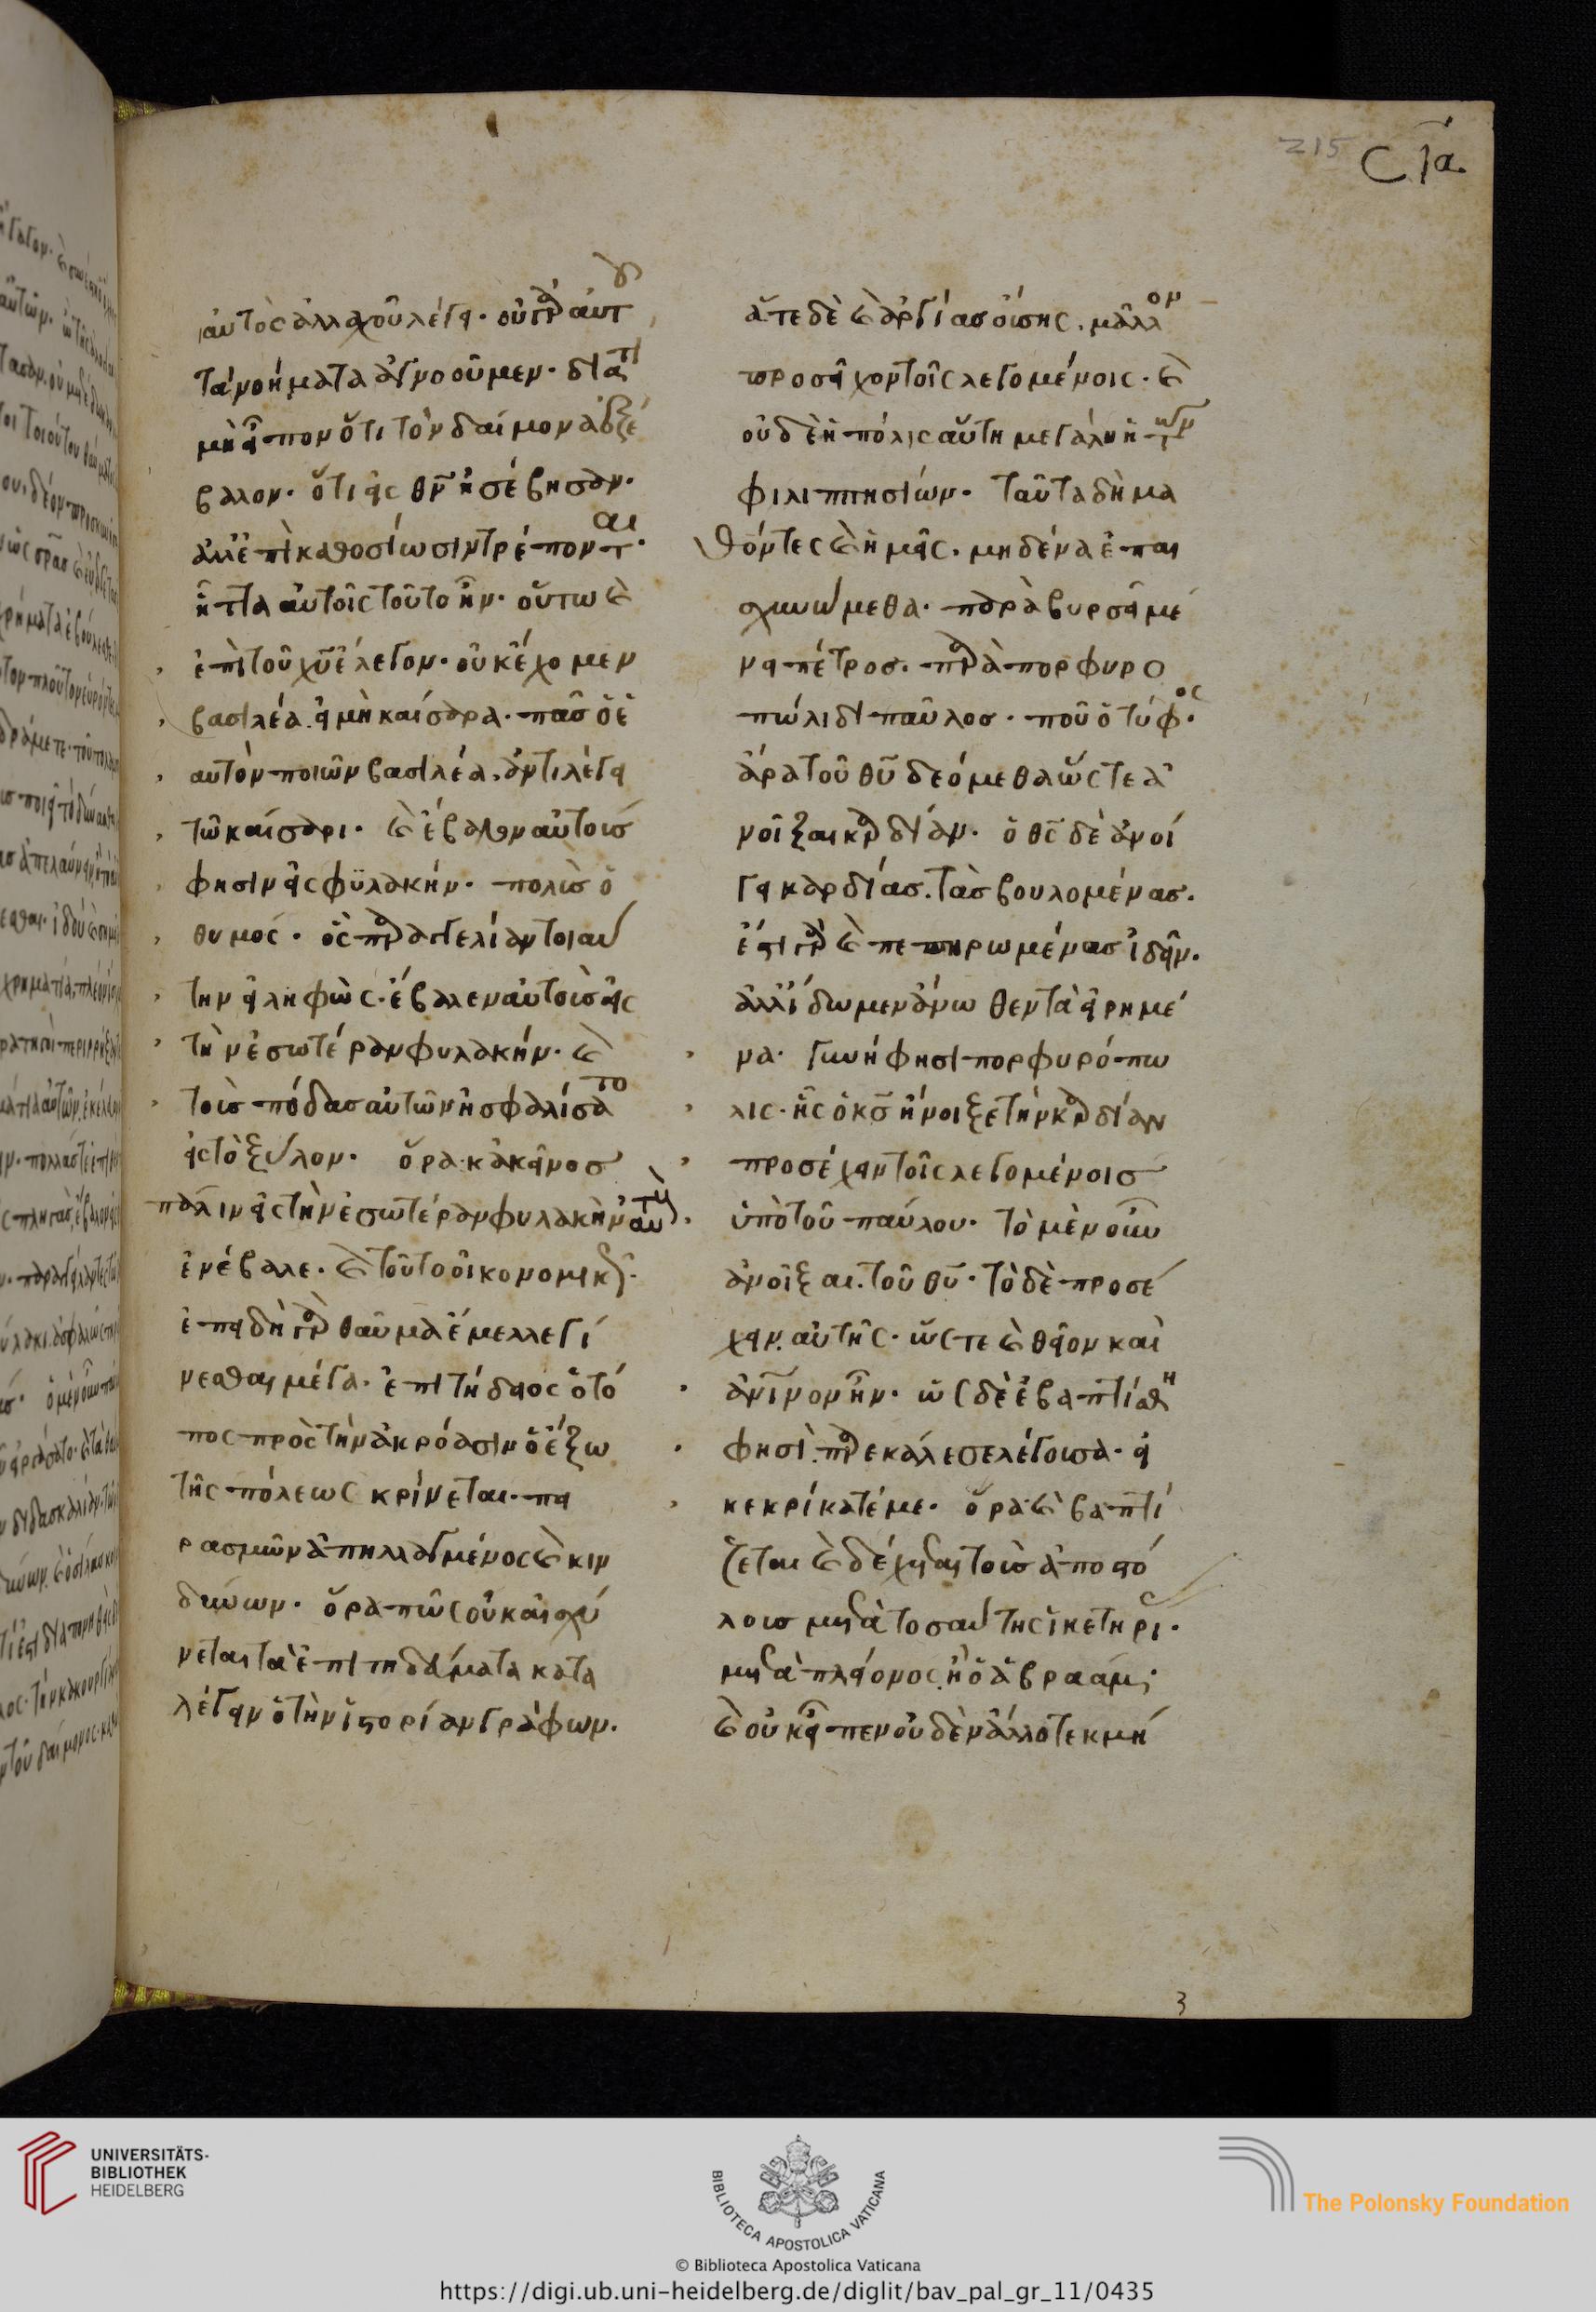 215 Σια.
αὐτὸς ἀλλαχοῦ λέγει· οὐ γὰρ αὐτοῦ
τὰ νοήματα ἀγνοοῦμεν· διατί
μὴ εἶπον ὅτι τὸν δαίμονα ἐξέ
βαλον· ὅτι εἰς θν̄ ἠσέβησαν·
ἀλλ' ἐπὶ καθοσίωσιν τρέπονται·
ἧττα αὐτοῖς τοῦτο ἦν· οὕτω καὶ
ἐπὶ τοῦ χῡ ἔλεγον· οὐκ ἔχομεν
βασιλέα. εἰ μὴ καίσαρα· πᾶσ ὁ ἑ
αυτὸν ποιῶν βασιλέα. ἀντιλέγει
τῶ καίσαρι· καὶ ἔβαλον αὐτοὺσ
φησὶν εἰς φϋλακήν· πολὺσ ὁ
θυμός· ὃς παραγγελίαν τοιαύ
την εἰληφὼς· ἔβαλεν αὐτοὺσ εἰς
τὴν ἐσωτέραν φυλακήν· καὶ
τοὺσ πόδασ αὐτῶν ἠσφαλίσατο
εἰς τὸ ξύλον· ὅρα κἀκεῖνοσ
πάλιν εἰς τὴν ἐσωτέραν φυλακὴν αὐτοὺς·
ἐνέβαλε· καὶ τοῦτο οἰκονομικῶς·
ἐπειδὴ γὰρ θαῦμα ἔμελλε γί
νεσθαι μέγα· ἐπιτήδειος ὁ τό
πος πρὸς τὴν ἀκρόασιν ὁ ἔξω
τῆς πόλεως κρίνεται· πει
ρασμῶν ἀπηλλαγμένος καὶ κιν
δύνων· ὅρα πῶς οὐκ αἰσχύ
νεται τὰ ἐπιτηδεύματα κατα
λέγειν ὁ τὴν ἱστορίαν γράφων.
ἅτε δὲ καὶ ἀργίασ οὔσης. μᾶλλον
προσεῖχον τοῖς λεγομένοις· καὶ
οὐδὲ ἡ πόλις αὕτη μεγάλη ἡ τῶν
φιλιππησίων· ταῦτα δὴ μα
θόντες καὶ ἡμεῖς. μηδένα ἐπαι
σχυνώμεθα· παρὰ βυρσεῖ μέ
νει πέτροσ. παρὰ πορφυρο
πώλιδι παῦλοσ. ποῦ ὁ τύφος·
ἄρα τοῦ θῡ δεόμεθα ὥστε ἀ
νοῖξαι καρδίαν. ὁ θς̄ δὲ ἀνοί
γει καρδίασ. τὰσ βουλομένασ.
ἔστι γὰρ καὶ πεπηρωμένασ ἰδεῖν.
ἀλλ' ἴδωμεν ἄνωθεν τὰ εἰρημέ
να· γυνή φησι πορφυρόπω
λις. ἧς ὁ κσ̄ ἤνοιξε τὴν καρδίαν
προσέχειν τοῖς λεγομένοισ
ὑπὸ τοῦ παύλου· τὸ μὲν οὖν
ἀνοῖξαι. τοῦ θῡ. τὸ δὲ προσέ
χειν. αὐτῆς. ὥστε καὶ θεῖον καὶ
ἀνῑνον ἦν· ὡς δὲ ἐβαπτίσθη
φησὶ. παρεκάλεσε λέγουσα· εἰ
κεκρίκατέ με· ὅρα καὶ βαπτί
ζεται καὶ δέχεται τοὺσ ἀποστό
λουσ μετὰ τοσαύτης ἱκετηρίας·
μετὰ πλείονος. ἢ ὁ ἀβραάμ;
καὶ οὐκ εἶπεν οὐδὲν ἄλλο τεκμή
3
UNIVERSITÄTS-
BIBLIOTHEK
HEIDELBERG
BIBLIOTECA APOSTOLICA VATICANA
The Polonsky Foundation
© Biblioteca Apostolica Vaticana
https://digi.ub.uni-heidelberg.de/diglit/bav_pal_gr_11/0435